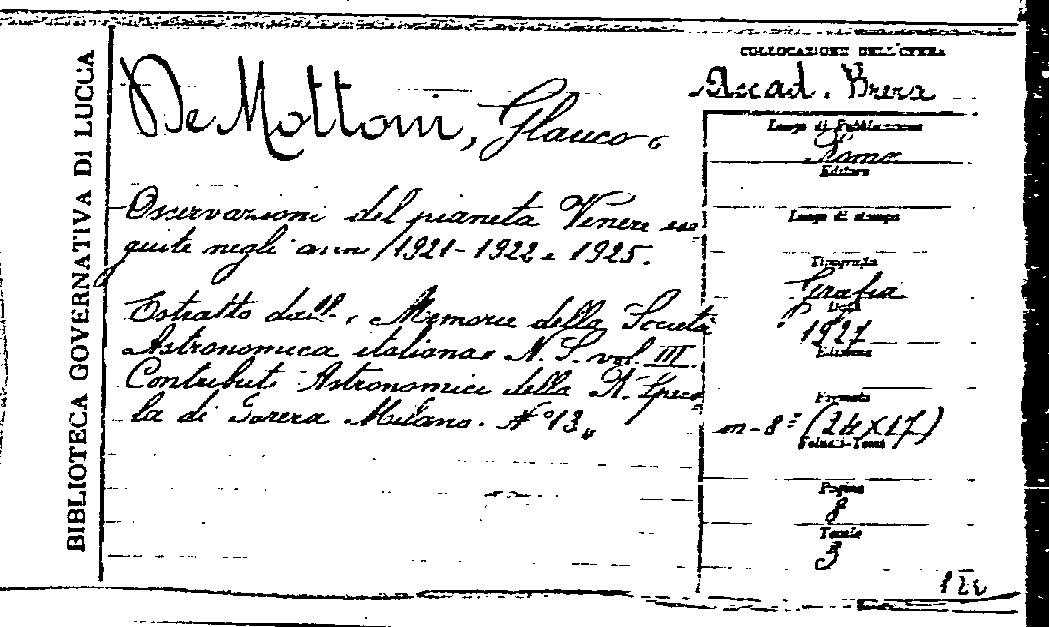 BIBLIOTECA GOVERNATIVA DI LUCCA
De Mottoni, Glauco.
Osservazioni del pianeta Venere ese
guite negli anni 1921-1922 e 1925.
Estratto dall' "Memorie della Società
Astronomica italiana" N. S. vol. III.
Contributi Astronomici della R. Speco
la di Brera Milano. N° 13"
COLLOCAZIONE DELL'OPERA
Accad. Brera
Luogo di Pubblicazione
Roma
Editore
Luogo di stampa
Tipografia
Grafia
Data
1927
Edizione
Formato
in-8° (24x17)
Volumi-Tomi
Pagine
8
Tavole
3